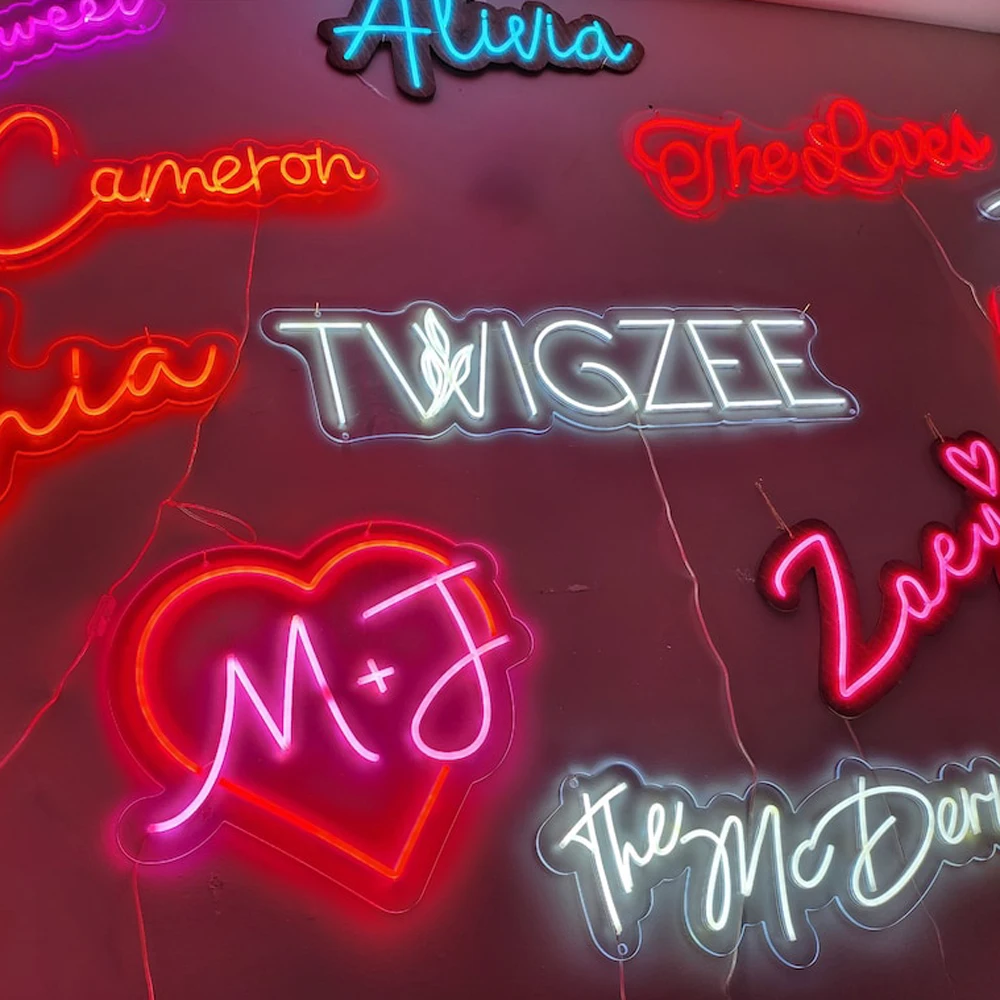 Alivia
Cameron
The Loves
TWIGZEE
M+J
The McDer